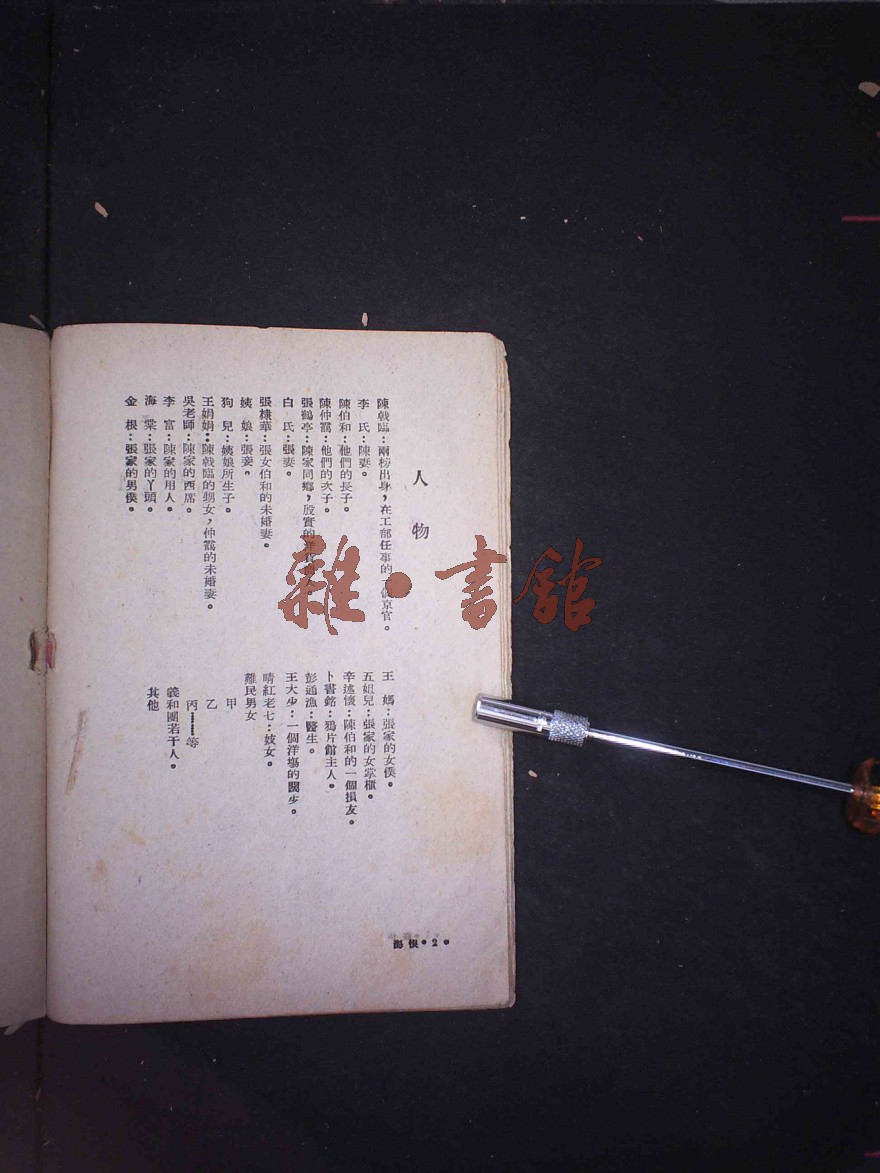 人物
陳戟臨：兩榜出身，在工部任事的一個京官。
李　氏：陳妻。
陳伯和：他們的長子。
陳仲靄：他們的次子。
張鶴亭：陳家同鄉，殷實的
白　氏：張妻。
張棣華：張女伯和的未婚妻。
姨　娘：張妾。
狗　兒：姨娘所生子。
王娟娟：陳戟臨的甥女，仲靄的未婚妻。
吳老師：陳家的西席。
李　富：陳家的用人。
海　棠：張家的丫頭。
金　根：張家的男僕。
王　媽：張家的女僕。
五姐兒：張家的女掌櫃。
辛述懷：陳伯和的一個損友。
卜書銘：鴉片館主人。
彭通漁：醫生。
王大少：一個洋場的闊少。
晴紅老七：妓女。
難民男女
甲
乙
丙……等
義和團若干人。
其他
海恨•2•
雜•書館